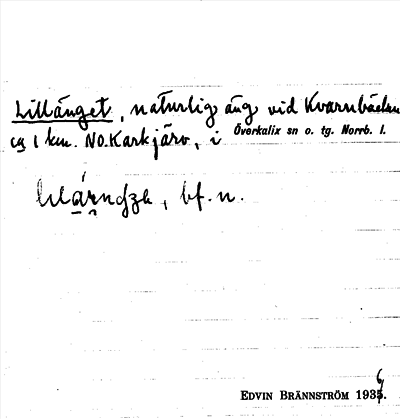 Lillänget, naturlig äng vid Kvarnbäcken
ca 1 km. NO. Karkjärv, i Överkalix sn o. tg. Norrb. l.
bf. n.
EDVIN BRÄNNSTRÖM 1934.